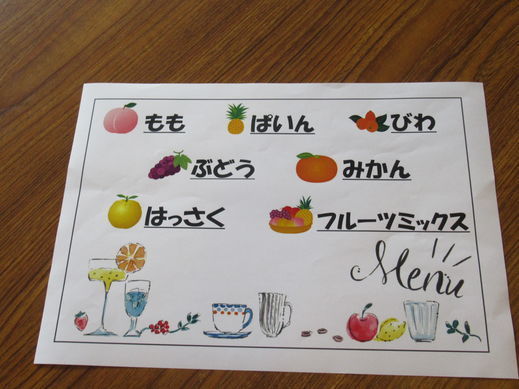 もも ぱいん びわ
ぶどう みかん
はっさく フルーツミックス
Menu